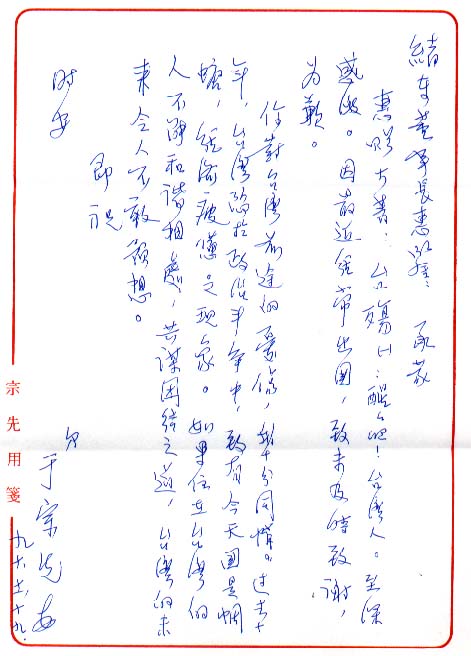 董事長惠鑒：承蒙
惠贈大著：台殤：醒醒吧！台灣人。至深
感激。因最近經常出國，致未及時致謝，
為歉。
你對台灣前途的憂慮，十分同情。過去十
年，台灣陷於政治鬥爭中，致有今天國是蜩
螗，經濟疲憊之現象。如果住在台灣的
人不能和諧相處，共謀團結之道，台灣的未
來令人不敢預想。
即祝
時安
于宗先
九六、七、十九.
宗先用箋